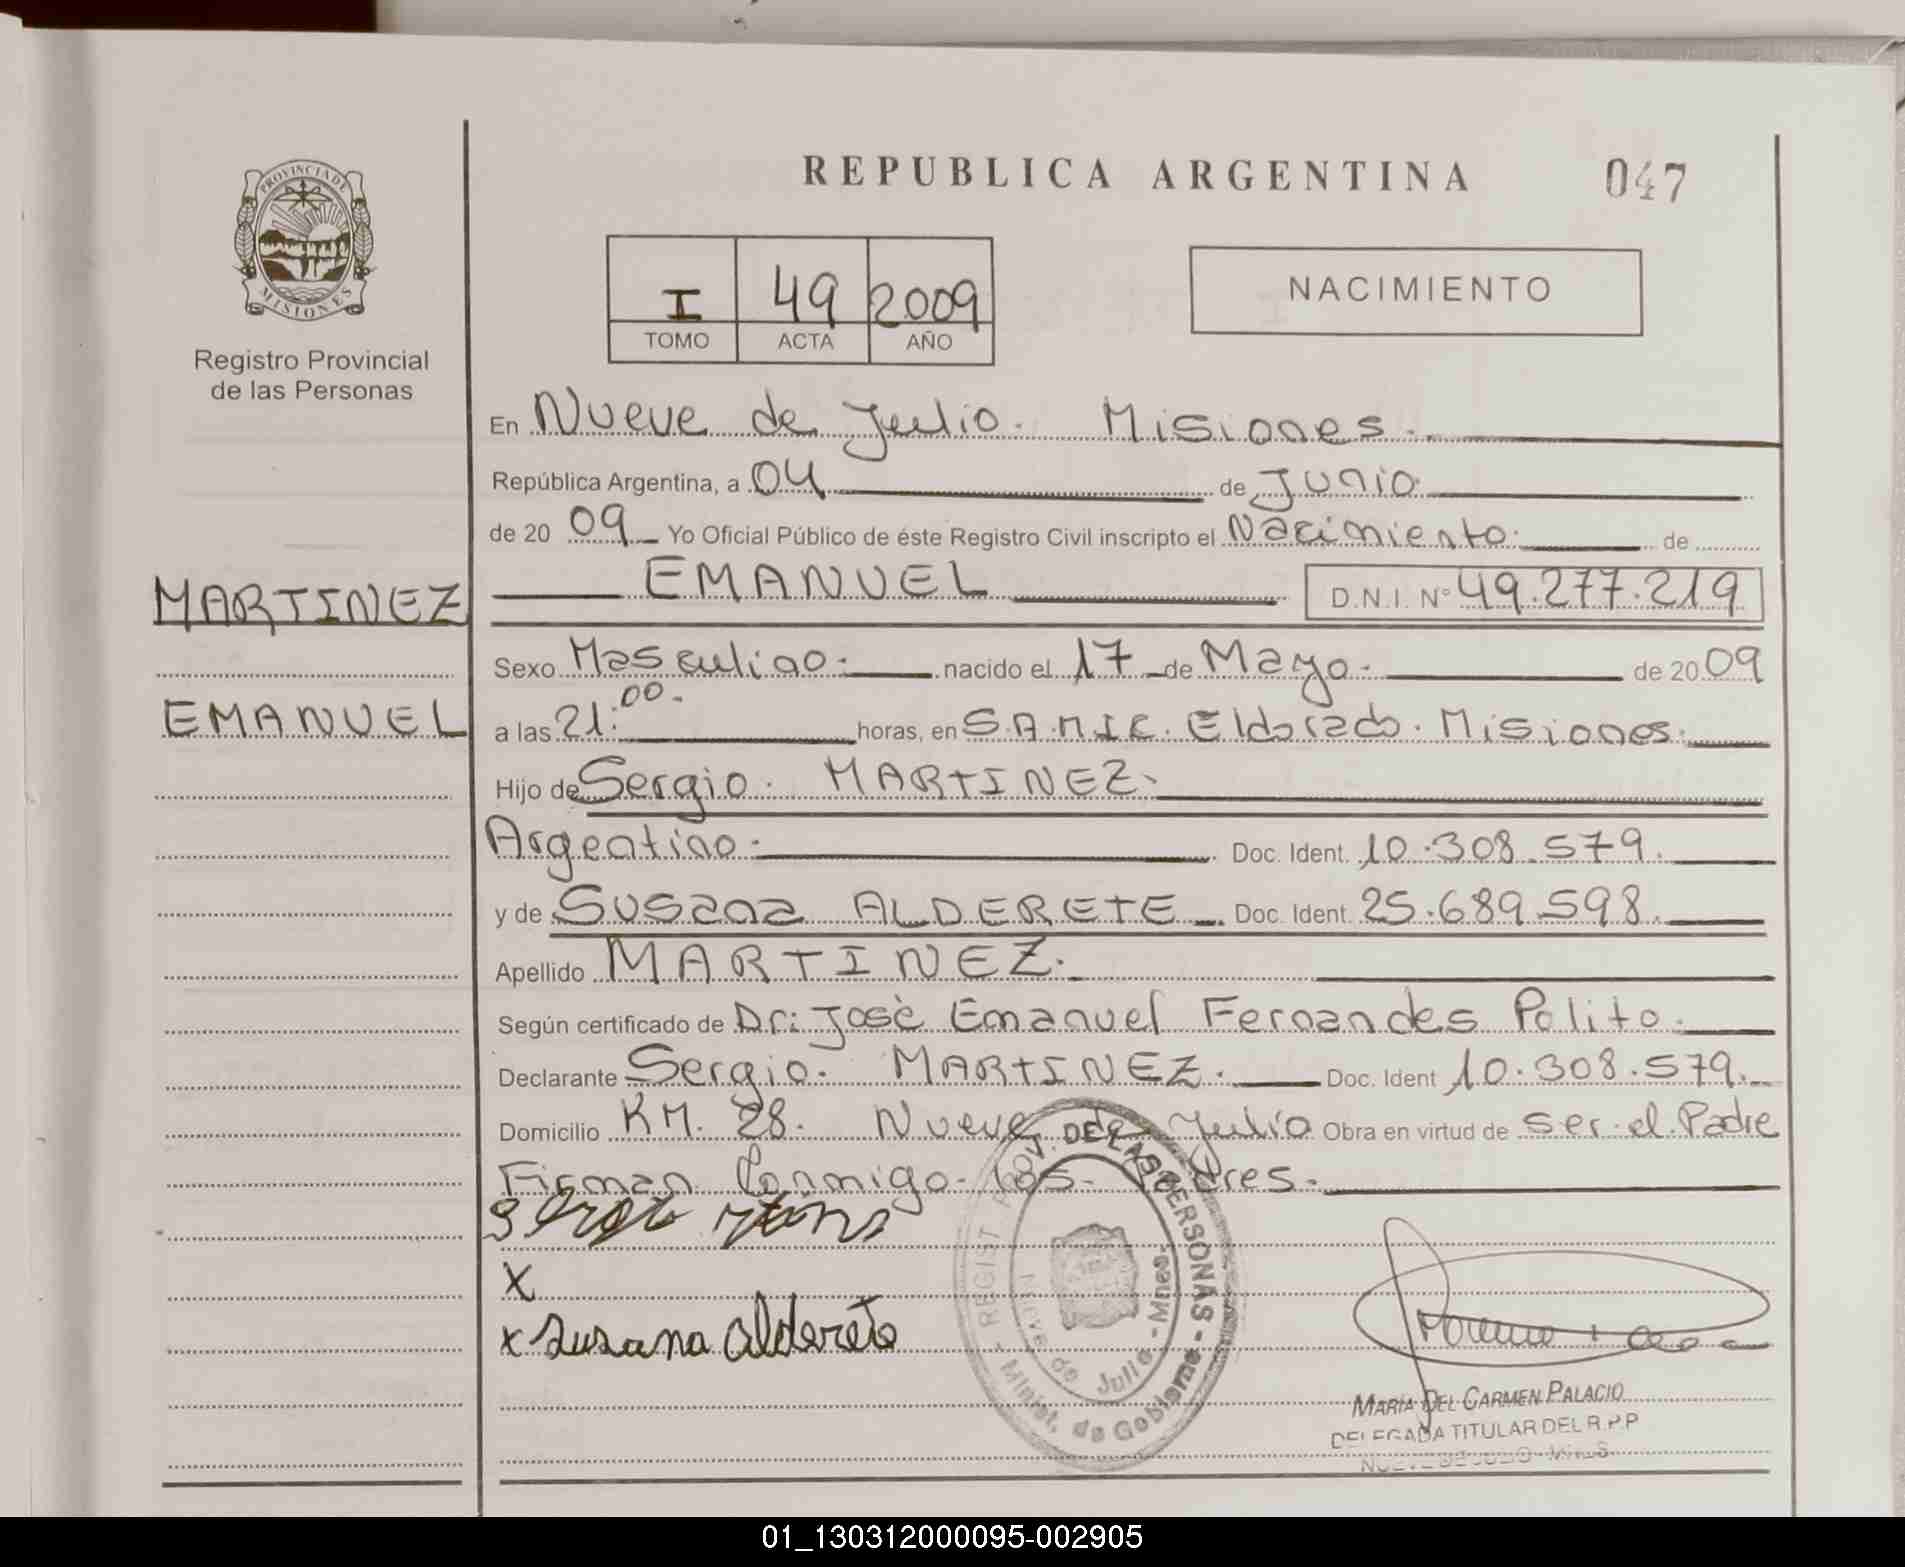 REPUBLICA ARGENTINA
047
PROVINCIA DE
MISIONES
Registro Provincial
de las Personas
I 49 2009
TOMO ACTA AÑO
NACIMIENTO
En Nueve de Julio. Misiones.
República Argentina, a 04 de Junio
de 20 09 Yo Oficial Público de éste Registro Civil inscripto el Nacimiento. de
MARTINEZ
EMANUEL D.N.I. Nº 49.277.219
Sexo Masculino. nacido el 17 de Mayo. de 20 09
EMANUEL
a las 21:00. horas, en S.A.M.I.C. Eldorado. Misiones.
Hijo de Sergio. MARTINEZ.
Argentino. Doc. Ident. 10.308.579.
y de Susana ALDERETE Doc. Ident. 25.689.598.
Apellido MARTINEZ.
Según certificado de Dr: Josè Emanuel Fernandes Polito.
Declarante Sergio. MARTINEZ. Doc. Ident 10.308.579.
Domicilio KM. 28. Nueve de Julio Obra en virtud de ser el Padre
Firman Conmigo los Padres.
X
x Susana alderete
REGIST. PROV. DE LAS PERSONAS - Minist. de Gobierno -
Nueve de Julio - Mnes -
MARIA DEL CARMEN PALACIO
DELEGADA TITULAR DEL R.P.P
NUEVE DE JULIO - MNES
01_130312000095-002905